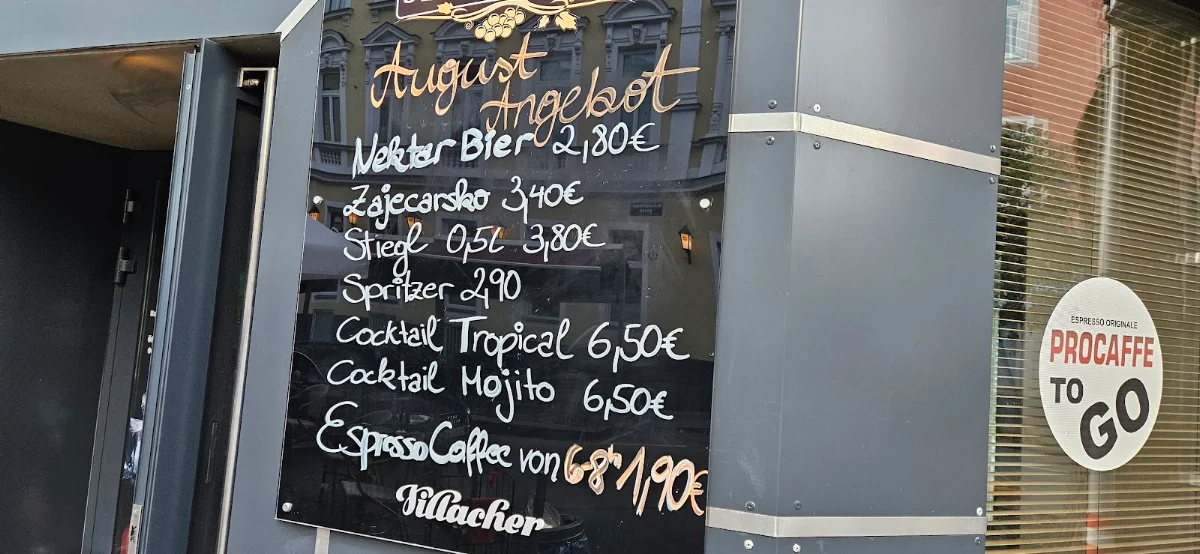 August
Angebot
Nektar Bier 2,80€
Zajecarsko 3,40€
Stiegl 0,5L 3,80€
Spritzer 2,90
Cocktail Tropical 6,50€
Cocktail Mojito 6,50€
Espresso Caffee von 6-8h 1,90€
Villacher
ESPRESSO ORIGINALE
PROCAFFE
TO
GO